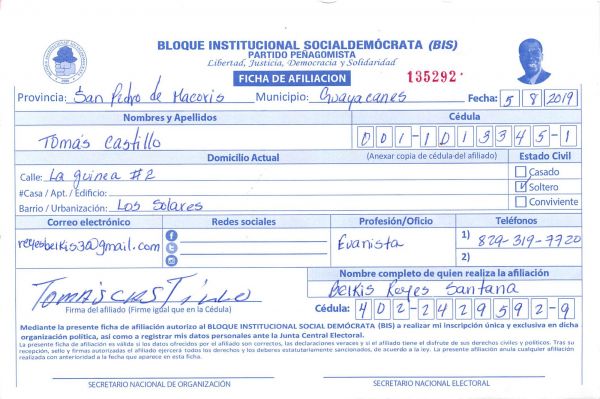 BLOQUE INSTITUCIONAL SOCIALDEMÓCRATA (BIS)
PARTIDO PEÑAGOMISTA
Libertad, Justicia, Democracia y Solidaridad
FICHA DE AFILIACION 135292
Provincia: San Pedro de Macoris Municipio: Guayacanes Fecha: 5 8 2019
Nombres y Apellidos Cédula
Tomás Castillo 001-1013345-1
Domicilio Actual (Anexar copia de cédula del afiliado) Estado Civil
Calle: La guinea #2 Casado
#Casa / Apt. / Edificio: Soltero
Barrio / Urbanización: Los Solares Conviviente
Correo electrónico Redes sociales Profesión/Oficio Teléfonos
reyesbelkis30@gmail.com Evanista 1) 829-319-7720
2)
Nombre completo de quien realiza la afiliación
TOMÁS CASTILLO Belkis Reyes Santana
Firma del afiliado (Firme igual que en la Cédula) Cédula: 402-2429592-9
Mediante la presente ficha de afiliación autorizo al BLOQUE INSTITUCIONAL SOCIAL DEMÓCRATA (BIS) a realizar mi inscripción única y exclusiva en dicha
organización política, así como a registrar mis datos personales ante la Junta Central Electoral.
La presente ficha de afiliación es válida si los datos ofrecidos por el afiliado son correctos, las declaraciones veraces y si el afiliado tiene el disfrute de sus derechos civiles y políticos. Tras su
recepción, sello y firmas autorizadas el afiliado ejercerá todos los derechos y los deberes estatutariamente sancionados, de acuerdo a la ley. La presente afiliación anula cualquier afiliación
realizada con anterioridad a la fecha que aparece en esta ficha.
SECRETARIO NACIONAL DE ORGANIZACIÓN SECRETARIO NACIONAL ELECTORAL